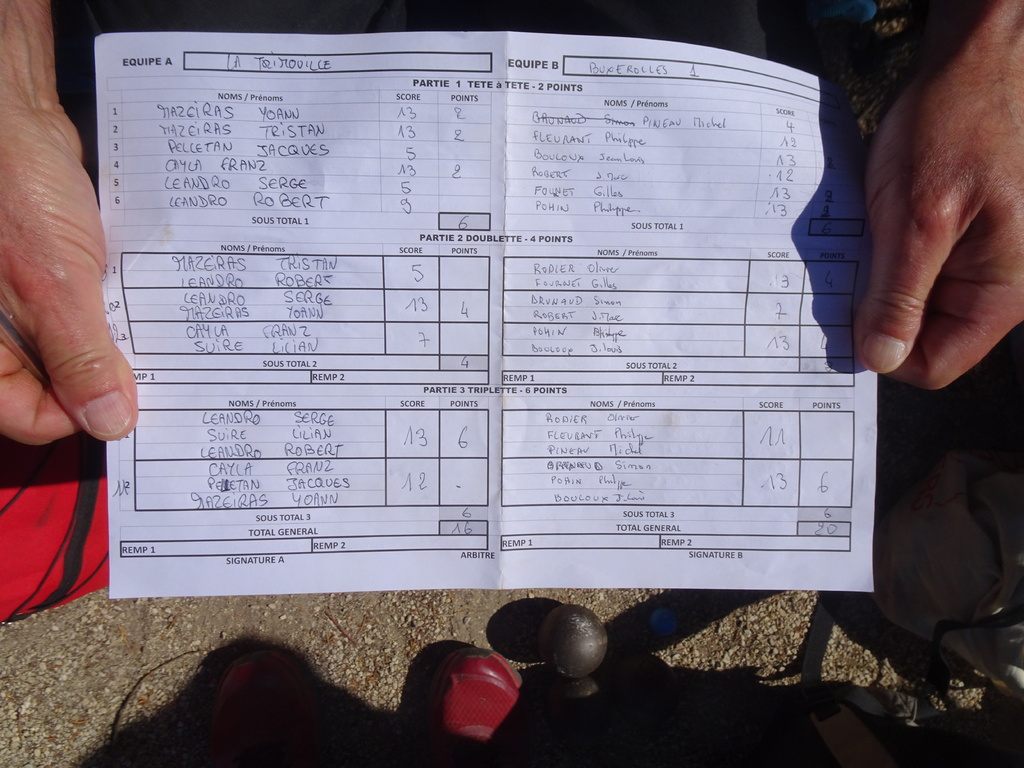 EQUIPE A LA TRIMOUILLE EQUIPE B BUXEROLLES 1
PARTIE 1 TETE à TETE - 2 POINTS
NOMS / Prénoms SCORE POINTS NOMS / Prénoms SCORE
1 MAZEIRAS YOANN 13 2 BRUNAUD Simon PINEAU Michel 4
2 MAZEIRAS TRISTAN 13 2 FLEURANT Philippe 12
3 PELLETAN JACQUES 5 BOULOUX Jean Louis 13 2
4 CAYLA FRANZ 13 2 ROBERT J.Marc 12
5 LEANDRO SERGE 5 FOURNET Gilles 13 2
6 LEANDRO ROBERT 9 POHIN Philippe 13 2
SOUS TOTAL 1 6 SOUS TOTAL 1 6
PARTIE 2 DOUBLETTE - 4 POINTS
NOMS / Prénoms SCORE POINTS NOMS / Prénoms SCORE POINTS
1 MAZEIRAS TRISTAN RODIER Olivier
LEANDRO ROBERT 5 FOURNET Gilles 13 4
LEANDRO SERGE BRUNAUD Simon
MAZEIRAS YOANN 13 4 ROBERT J.Marc 7
CAYLA FRANZ POHIN Philippe
SUIRE LILIAN 7 BOULOUX J.Louis 13 4
SOUS TOTAL 2 4 SOUS TOTAL 2
MP 1 REMP 2 REMP 1 REMP 2
PARTIE 3 TRIPLETTE - 6 POINTS
NOMS / Prénoms SCORE POINTS NOMS / Prénoms SCORE POINTS
LEANDRO SERGE RODIER Olivier
SUIRE LILIAN 13 6 FLEURANT Philippe 11
LEANDRO ROBERT PINEAU Michel
CAYLA FRANZ BRUNAUD Simon
PELLETAN JACQUES 12 - POHIN Philippe 13 6
MAZEIRAS YOANN BOULOUX J.Louis
SOUS TOTAL 3 6 SOUS TOTAL 3 6
TOTAL GENERAL 16 TOTAL GENERAL 20
REMP 1 REMP 2 REMP 1 REMP 2
SIGNATURE A ARBITRE SIGNATURE B